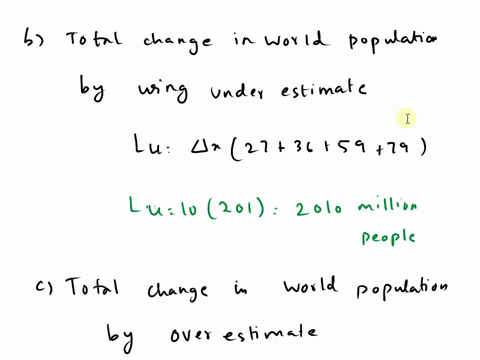 b) Total change in world population
by using under estimate
Lu: Δx (27+36+59+79)
Lu=10(201) = 2010 million
people
c) Total change in world population
by over estimate